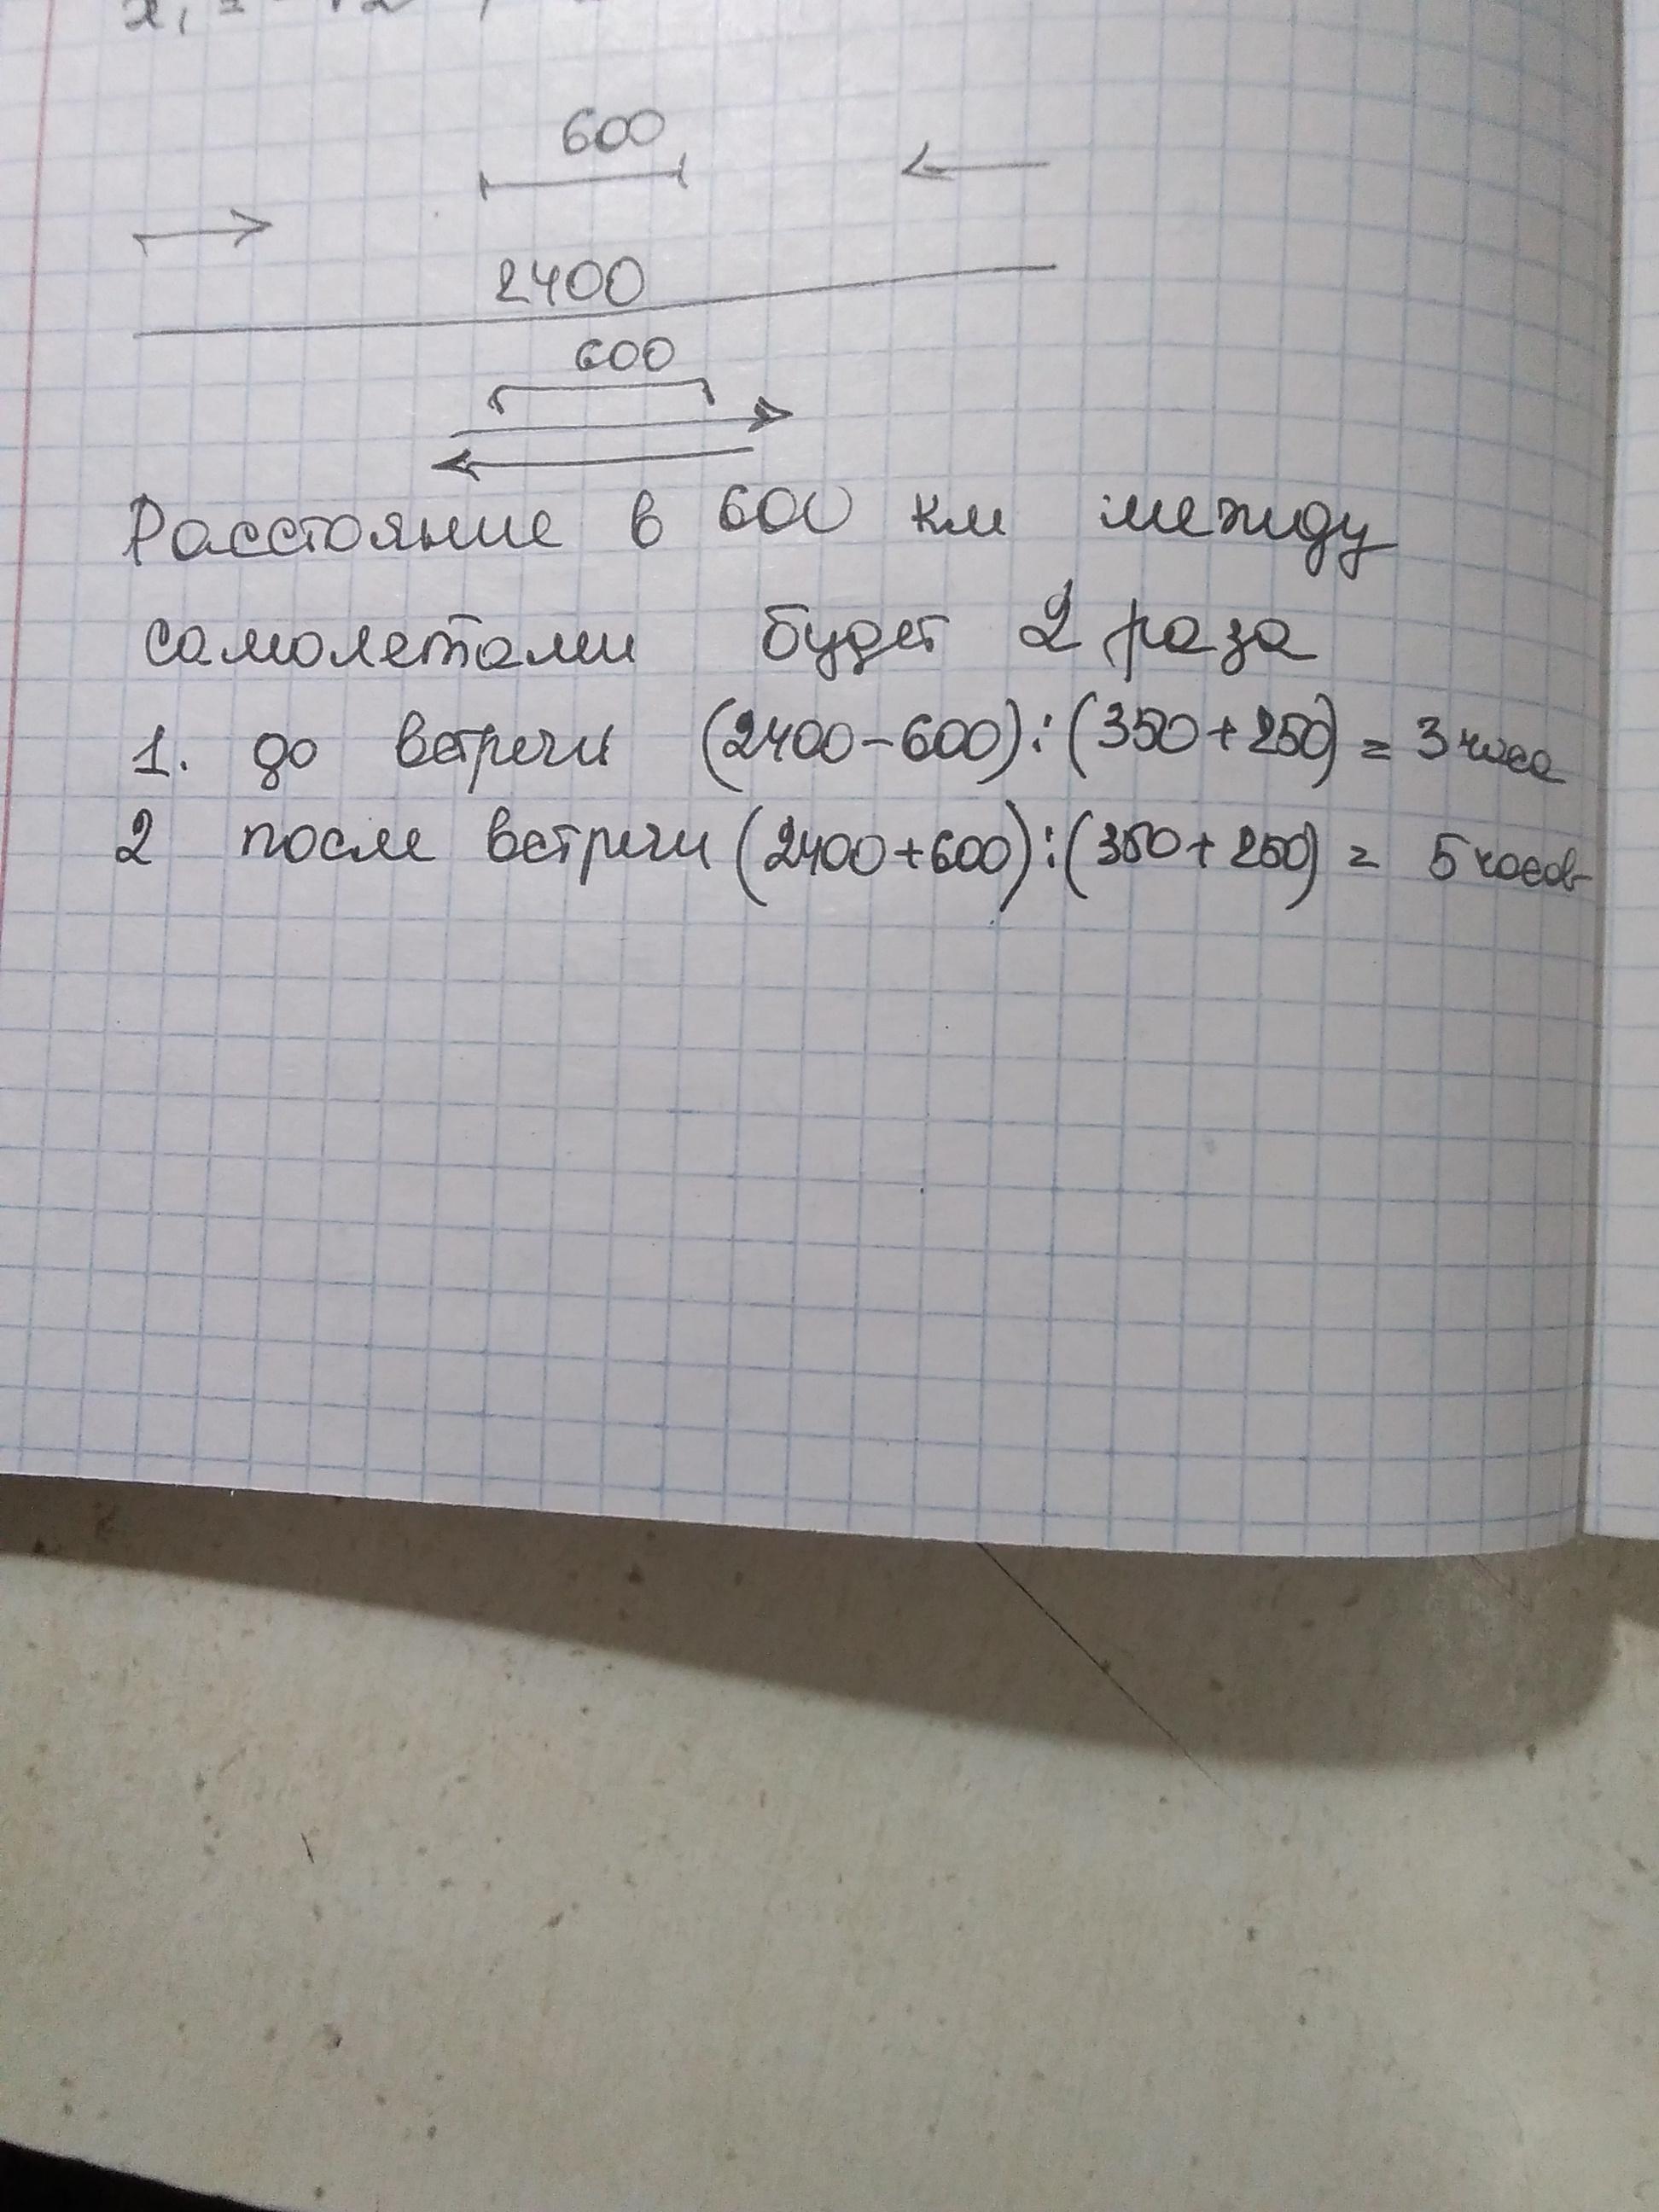 600
2400
600
Расстояние в 600 км между
самолетами будет 2 раза
1. до встречи (2400-600):(350+250) = 3 часа
2 после встречи (2400+600):(350+250) = 5 часов